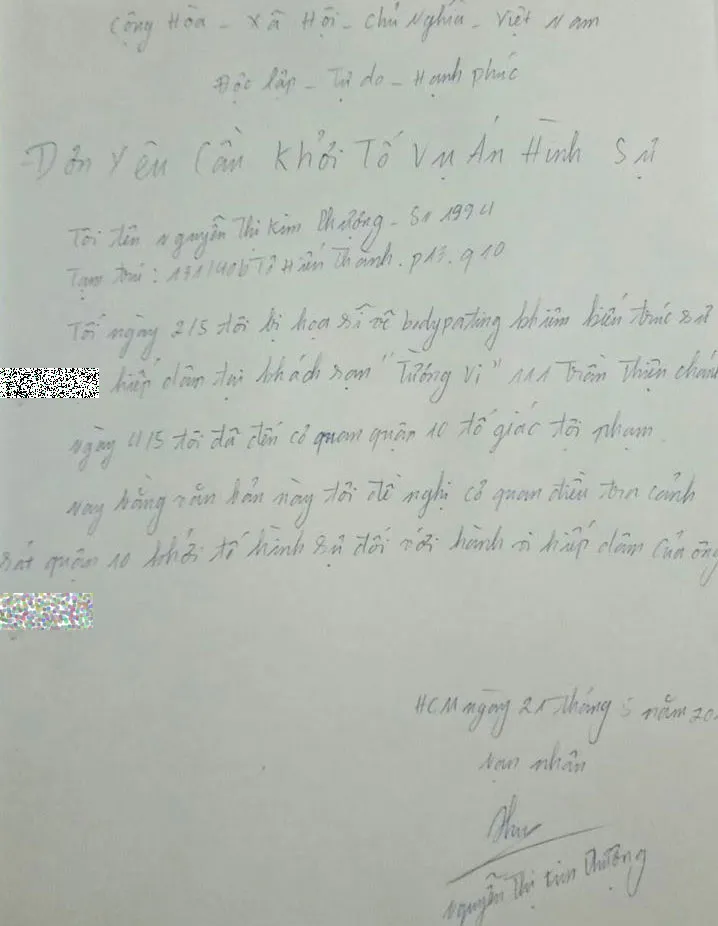 Cộng Hòa - Xã Hội - Chủ Nghĩa - Việt Nam
Độc lập - Tự do - Hạnh phúc
Đơn Yêu Cầu Khởi Tố Vụ Án Hình Sự
Tôi tên Nguyễn Thị Kim Phượng - Sn 1994
Tạm trú: 131/40b Tô Hiến Thành. p13. q10
Tối ngày 2/5 tôi bị họa sĩ vẽ bodypating kiêm kiến trúc sư
hiếp dâm tại khách sạn "Tường Vi" 111 Trần Thiện Chánh
ngày 4/5 tôi đã đến cơ quan quận 10 tố giác tội phạm
nay bằng văn bản này tôi đề nghị cơ quan điều tra cảnh
sát quận 10 khởi tố hình sự đối với hành vi hiếp dâm của ông
HCM ngày 21 tháng 5 năm 20
nạn nhân
Nguyễn Thị Kim Phượng